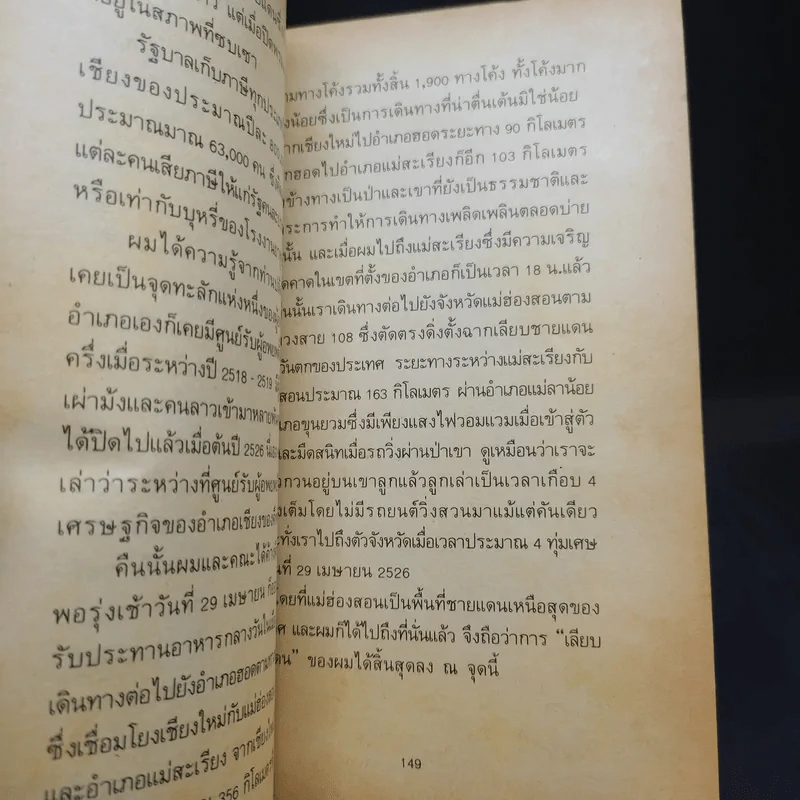 อยู่ในสภาพที่ซบเซา
รัฐบาลเก็บภาษีทุก
เชียงของประมาณปีละ
ประมาณมาณ 63,000 คน
แต่ละคนเสียภาษีให้แก่รัฐ
หรือเท่ากับบุหรี่ของโรงงาน
ผมได้ความรู้จาก
เคยเป็นจุดทะลักแห่งหนึ่งของ
อำเภอเองก็เคยมีศูนย์รับผู้
ครึ่งเมื่อระหว่างปี 2518 - 2519
เผ่าม้งและคนลาวเข้ามาหลาย
ได้ปิดไปแล้วเมื่อต้นปี 2526
เล่าว่าระหว่างที่ศูนย์รับผู้
เศรษฐกิจของอำเภอเชียงของ
คืนนั้นผมและคณะได้
พอรุ่งเช้าวันที่ 29 เมษายน
รับประทานอาหารกลางวัน
เดินทางต่อไปยังอำเภอฮอดตาม
ซึ่งเชื่อมโยงเชียงใหม่กับแม่ฮ่อง
และอำเภอแม่สะเรียง จาก
356 กิโลเมตร
ทางโค้งรวมทั้งสิ้น 1,900 ทางโค้ง ทั้งโค้งมาก
น้อยซึ่งเป็นการเดินทางที่น่าตื่นเต้นมิใช่น้อย
ากเชียงใหม่ไปอำเภอฮอดระยะทาง 90 กิโลเมตร
ฮอดไปอำเภอแม่สะเรียงก็อีก 103 กิโลเมตร
ข้างทางเป็นป่าและเขาที่ยังเป็นธรรมชาติและ
ระการทำให้การเดินทางเพลิดเพลินตลอดบ่าย
นั้น และเมื่อผมไปถึงแม่สะเรียงซึ่งมีความเจริญ
คาดในเขตที่ตั้งของอำเภอก็เป็นเวลา 18 น.แล้ว
นนั้นเราเดินทางต่อไปยังจังหวัดแม่ฮ่องสอนตาม
วงสาย 108 ซึ่งตัดตรงดิ่งตั้งฉากเลียบชายแดน
วันตกของประเทศ ระยะทางระหว่างแม่สะเรียงกับ
สอนประมาณ 163 กิโลเมตร ผ่านอำเภอแม่ลาน้อย
ภอขุนยวมซึ่งมีเพียงแสงไฟวอมแวมเมื่อเข้าสู่ตัว
และมืดสนิทเมื่อรถวิ่งผ่านป่าเขา ดูเหมือนว่าเราจะ
วกวนอยู่บนเขาลูกแล้วลูกเล่าเป็นเวลาเกือบ 4
งเต็มโดยไม่มีรถยนต์วิ่งสวนมาแม้แต่คันเดียว
ะทั่งเราไปถึงตัวจังหวัดเมื่อเวลาประมาณ 4 ทุ่มเศษ
นที่ 29 เมษายน 2526
โดยที่แม่ฮ่องสอนเป็นพื้นที่ชายแดนเหนือสุดของ
ศ และผมก็ได้ไปถึงที่นั่นแล้ว จึงถือว่าการ “เลียบ
ดน” ของผมได้สิ้นสุดลง ณ จุดนี้
149